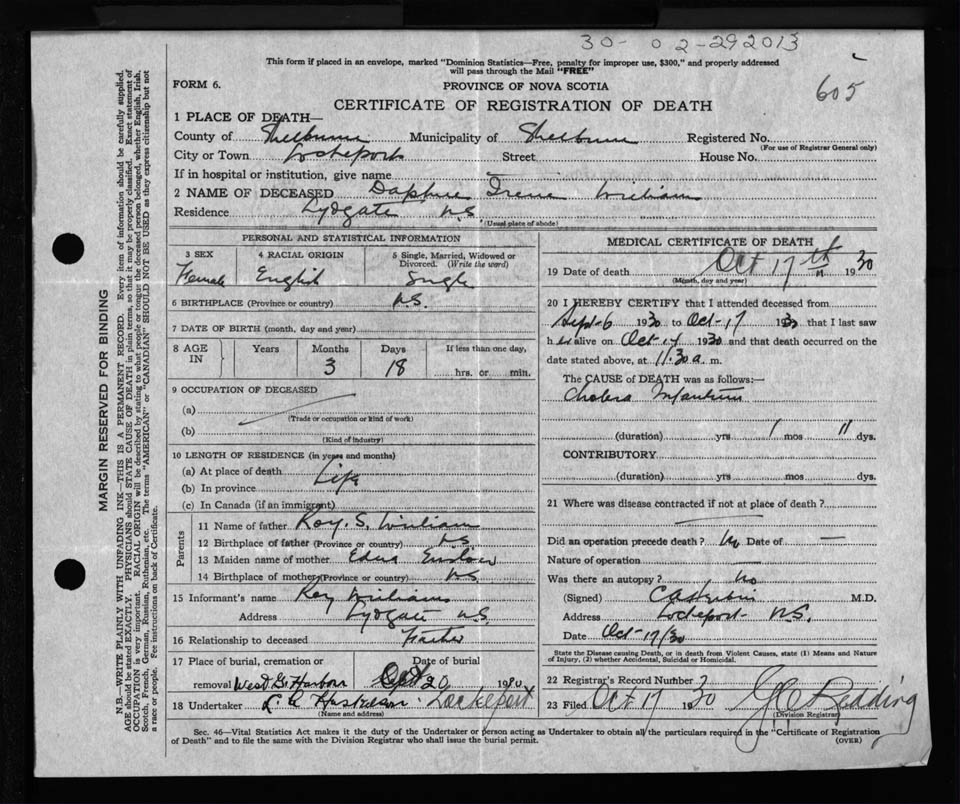 30- 02-292013
This form if placed in an envelope, marked "Dominion Statistics—Free, penalty for improper use, $300," and properly addressed
will pass through the Mail "FREE"
605
FORM 6.
PROVINCE OF NOVA SCOTIA
CERTIFICATE OF REGISTRATION OF DEATH
1 PLACE OF DEATH—
County of Shelburne Municipality of Shelburne Registered No.
(For use of Registrar General only)
City or Town Lockeport Street House No.
If in hospital or institution, give name
2 NAME OF DECEASED Daphne Irene William
Residence Lydgate N.S.
(Usual place of abode)
PERSONAL AND STATISTICAL INFORMATION
3 SEX 4 RACIAL ORIGIN 5 Single, Married, Widowed or
Divorced. (Write the word)
Female English Single
6 BIRTHPLACE (Province or country) N.S.
7 DATE OF BIRTH (month, day and year)
8 AGE IN Years Months Days If less than one day,
3 18 hrs. or min.
9 OCCUPATION OF DECEASED
(a)
(Trade or occupation or kind of work)
(b)
(Kind of industry)
10 LENGTH OF RESIDENCE (in years and months)
(a) At place of death Life
(b) In province
(c) In Canada (if an immigrant)
Parents
11 Name of father Roy. S. William
12 Birthplace of father (Province or country) N.S.
13 Maiden name of mother Edna
14 Birthplace of mother (Province or country) N.S.
15 Informant's name Roy Williams
Address Lydgate N.S.
16 Relationship to deceased Father
17 Place of burial, cremation or Date of burial
removal West G. Harbor Oct 20 1930
18 Undertaker Lockeport
(Name and address)
MEDICAL CERTIFICATE OF DEATH
19 Date of death Oct 17th 1930
(Month, day and year)
20 I HEREBY CERTIFY that I attended deceased from
Sept-6 1930 to Oct-17 1930 that I last saw
her alive on Oct-14 1930 and that death occurred on the
date stated above, at 11.30 a. m.
The CAUSE of DEATH was as follows:—
Cholera Infantum
(duration) yrs 1 mos 11 dys.
CONTRIBUTORY
(duration) yrs. mos. dys.
21 Where was disease contracted if not at place of death?
Did an operation precede death? No Date of —
Nature of operation —
Was there an autopsy? No
(Signed) M.D.
Address Lockeport N.S.
Date Oct-17/30
State the Disease causing Death, or in death from Violent Causes, state (1) Means and Nature
of Injury, (2) whether Accidental, Suicidal or Homicidal.
22 Registrar's Record Number 3
23 Filed Oct 17 1930 G C Redding
(Division Registrar)
Sec. 46—Vital Statistics Act makes it the duty of the Undertaker or person acting as Undertaker to obtain all the particulars required in the "Certificate of Registration
of Death" and to file the same with the Division Registrar who shall issue the burial permit.
(OVER)
MARGIN RESERVED FOR BINDING
N.B.—WRITE PLAINLY WITH UNFADING INK—THIS IS A PERMANENT RECORD. Every item of information should be carefully supplied.
AGE should be stated EXACTLY. PHYSICIANS should STATE CAUSE OF DEATH in plain terms, so that it may be properly classified. Exact statement of
OCCUPATION is very important. RACIAL ORIGIN will be described by stating to what people or tongue the deceased person belonged, whether English, Irish,
Scotch, French, German, Russian, Ruthenian, etc. The terms "AMERICAN" or "CANADIAN" SHOULD NOT BE USED as they express citizenship but not
a race or people. See instructions on back of Certificate.